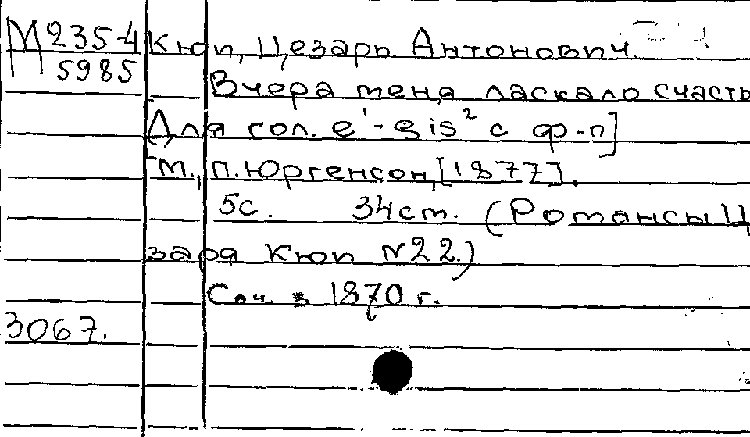 М 235-4 Кюи, Цезарь Антонович.
5985
Вчера меня ласкало счасть
Для гол. e¹-gis² с ф-п]
М., П. Юргенсон, [1877].
5с. 34см. (Романсы Ц
заря Кюи №22.)
Соч. в 1870 г.
3067.